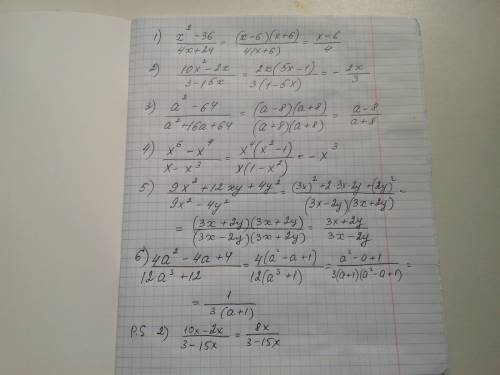 1) (x² - 36)/(4x+24) = ((x-6)(x+6))/(4(x+6)) = (x-6)/4
2) (10x² - 2x)/(3-15x) = (2x(5x-1))/(3(1-5x)) = - 2x/3
3) (a² - 64)/(a²+16a+64) = ((a-8)(a+8))/((a+8)(a+8)) = (a-8)/(a+8)
4) (x⁶ - x⁴)/(x - x³) = (x⁴(x²-1))/(x(1-x²)) = - x³
5) (9x² + 12xy + 4y²)/(9x² - 4y²) = ((3x)² + 2·3x·2y + (2y)²)/((3x-2y)(3x+2y)) =
= ((3x+2y)(3x+2y))/((3x-2y)(3x+2y)) = (3x+2y)/(3x-2y)
6) (4a² - 4a + 4)/(12a³ + 12) = (4(a² - a + 1))/(12(a³ + 1)) = (a² - a + 1)/(3(a+1)(a² - a + 1)) =
= 1/(3(a+1))
P.S 2) (10x-2x)/(3-15x) = 8x/(3-15x)